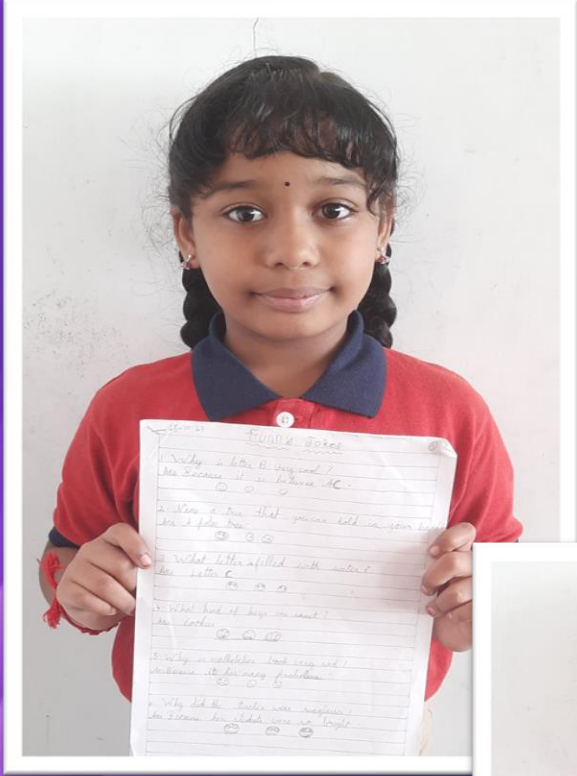 Funny Jokes
1. Why is letter B very cool?
Ans Because it is between AC.
2. Name a tree that you can hold in your
Ans A palm tree
3. What letter is filled with water?
Ans Letter C
4. What kind of keys are sweet?
Ans Cookies
5. Why is book very sad?
Ans Because it has many problems
6. Why did the teacher wear sunglasses?
Ans Because her students were so bright